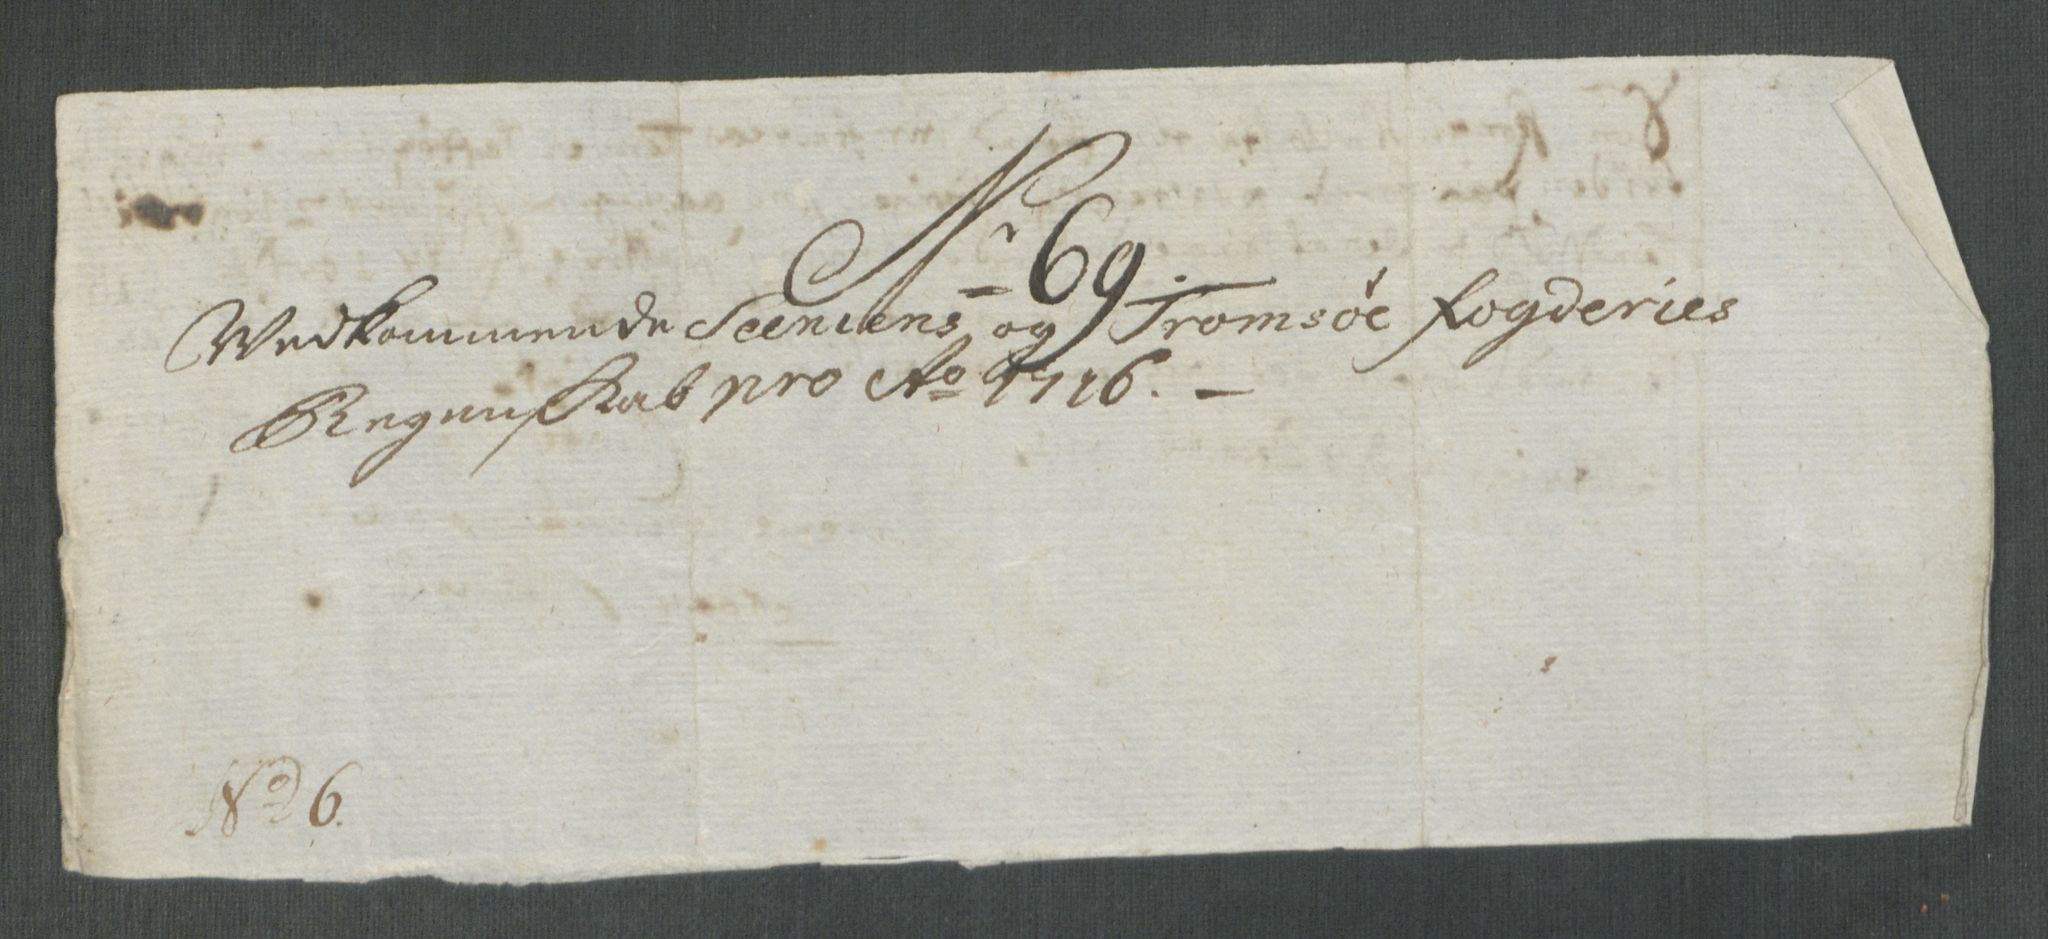 Nr 69.
Vedkommende Seeniens og Tromsøe fogderies
Regenskab pro Ao 1716. –
No 6.